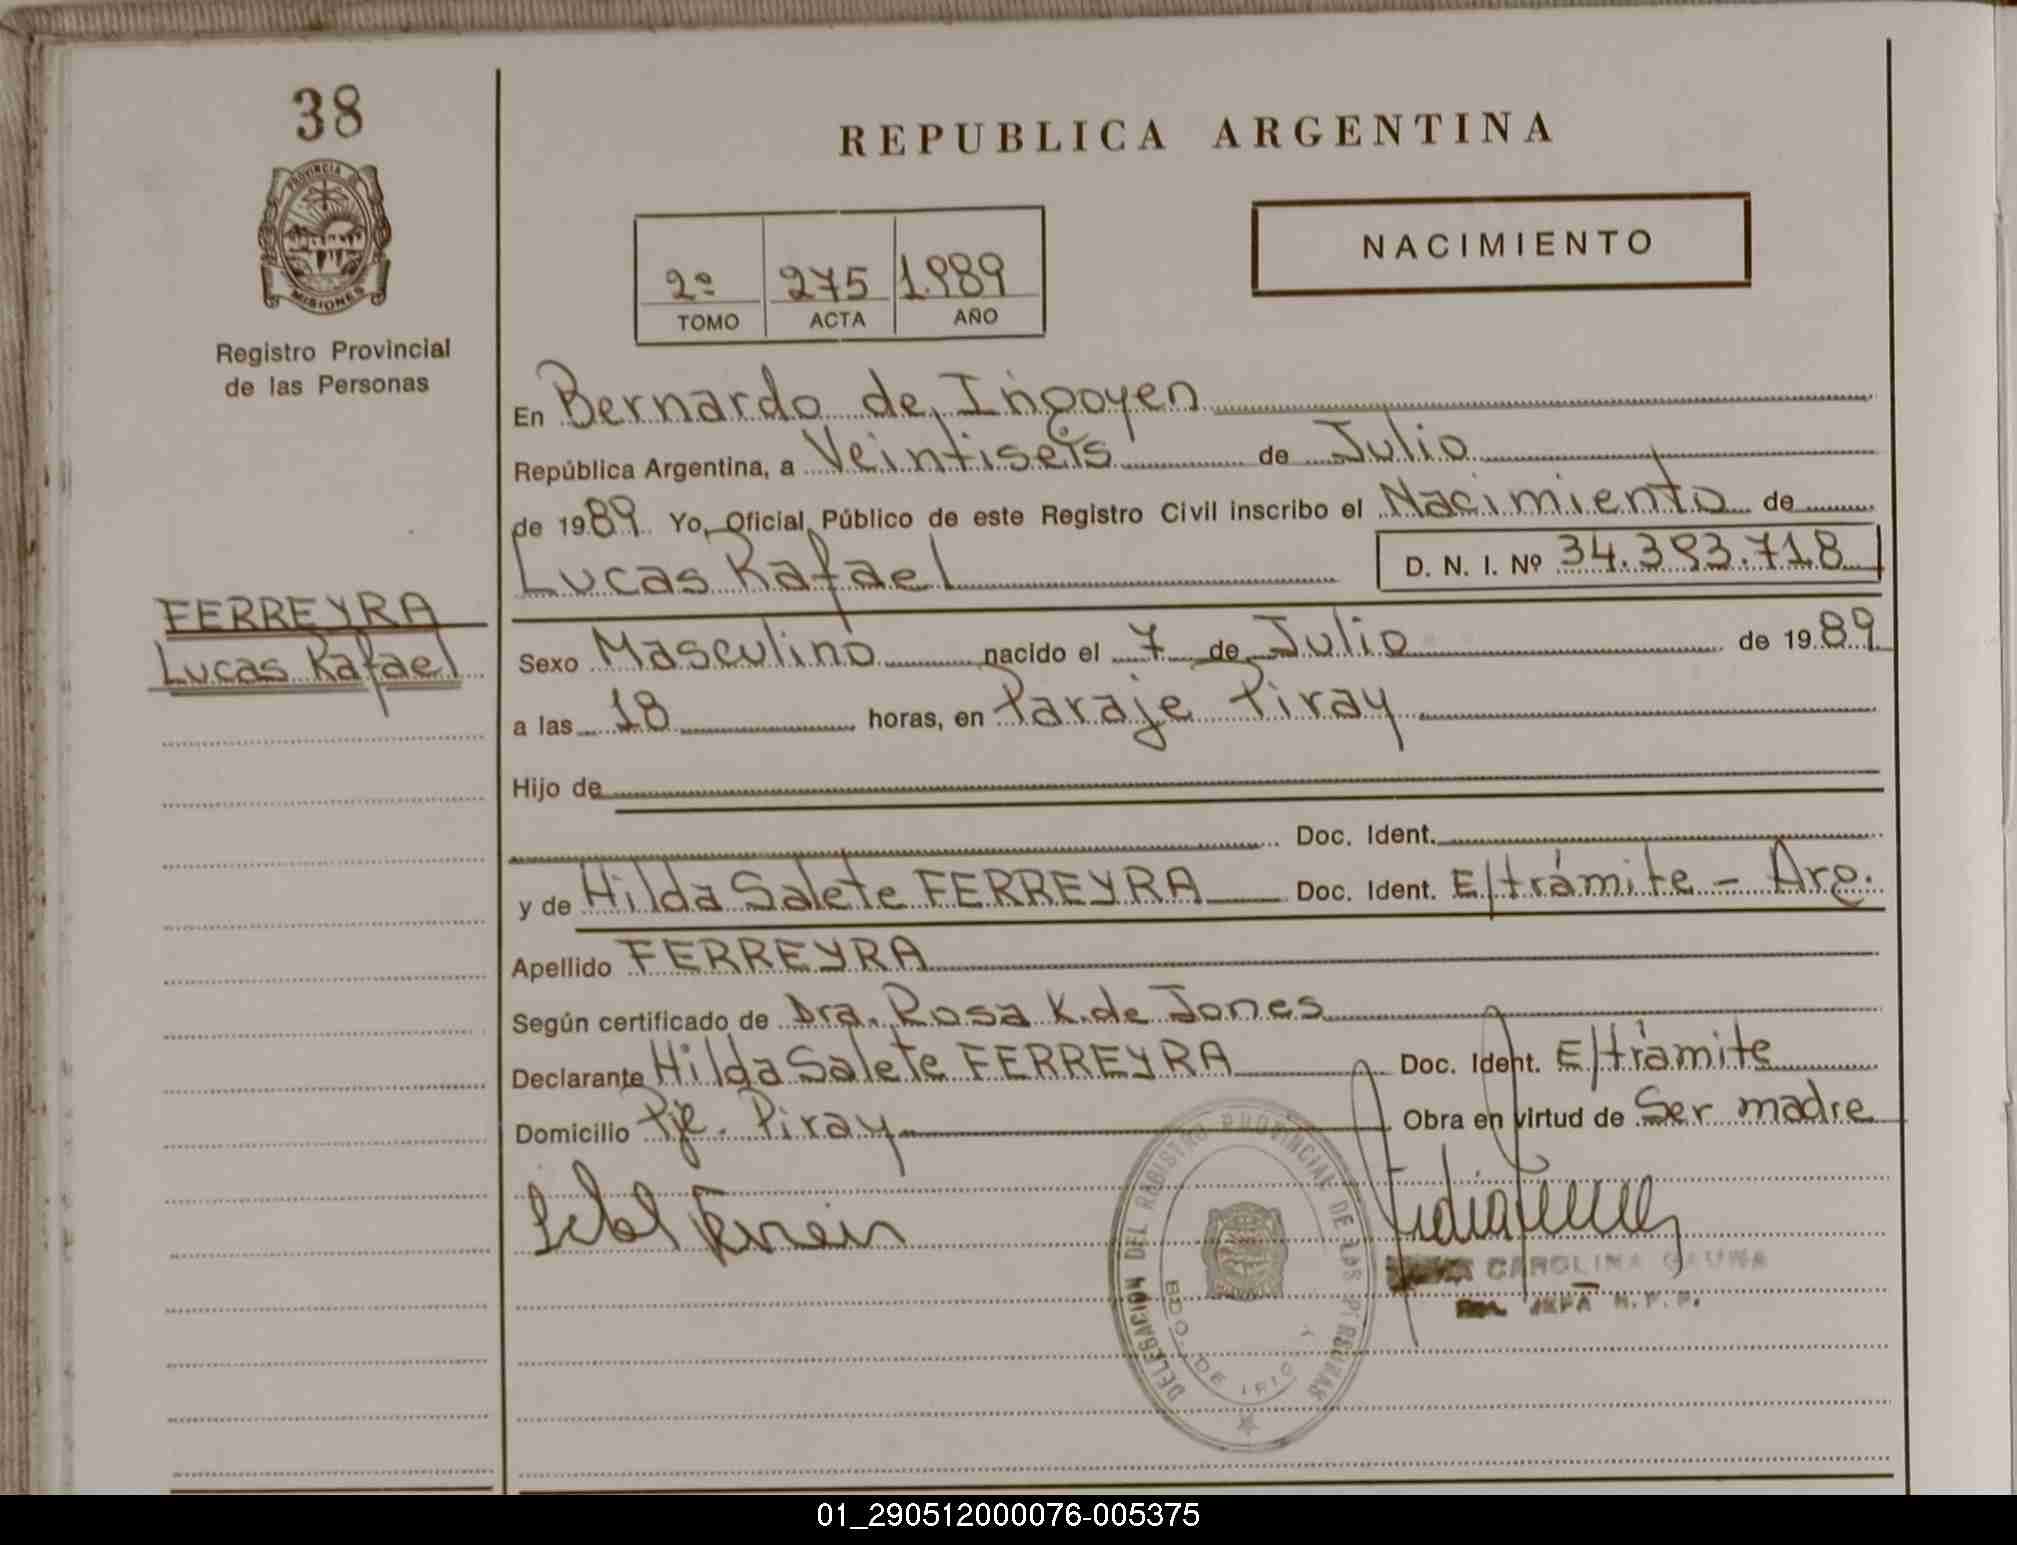 38
PROVINCIA DE
MISIONES
Registro Provincial
de las Personas
FERREYRA
Lucas Rafael
REPUBLICA ARGENTINA
NACIMIENTO
2º 275 1.989
TOMO ACTA AÑO
En Bernardo de Irigoyen
República Argentina, a Veintiseis de Julio
de 1989 Yo, Oficial Público de este Registro Civil inscribo el Nacimiento de
Lucas Rafael D. N. I. Nº 34.393.718
Sexo Masculino nacido el 7 de Julio de 1989
a las 18 horas, en Paraje Piray
Hijo de
Doc. Ident.
y de Hilda Salete FERREYRA Doc. Ident. E/trámite - Arg.
Apellido FERREYRA
Según certificado de Dra. Rosa K. de Jones
Declarante Hilda Salete FERREYRA Doc. Ident. E/trámite
Domicilio Pje. Piray Obra en virtud de Ser madre
DELEGACION DEL REGISTRO PROVINCIAL DE LAS PERSONAS
BDO. DE IRIGOYEN
CAROLINA GAUNA
JEFA R.P.P.
01_290512000076-005375